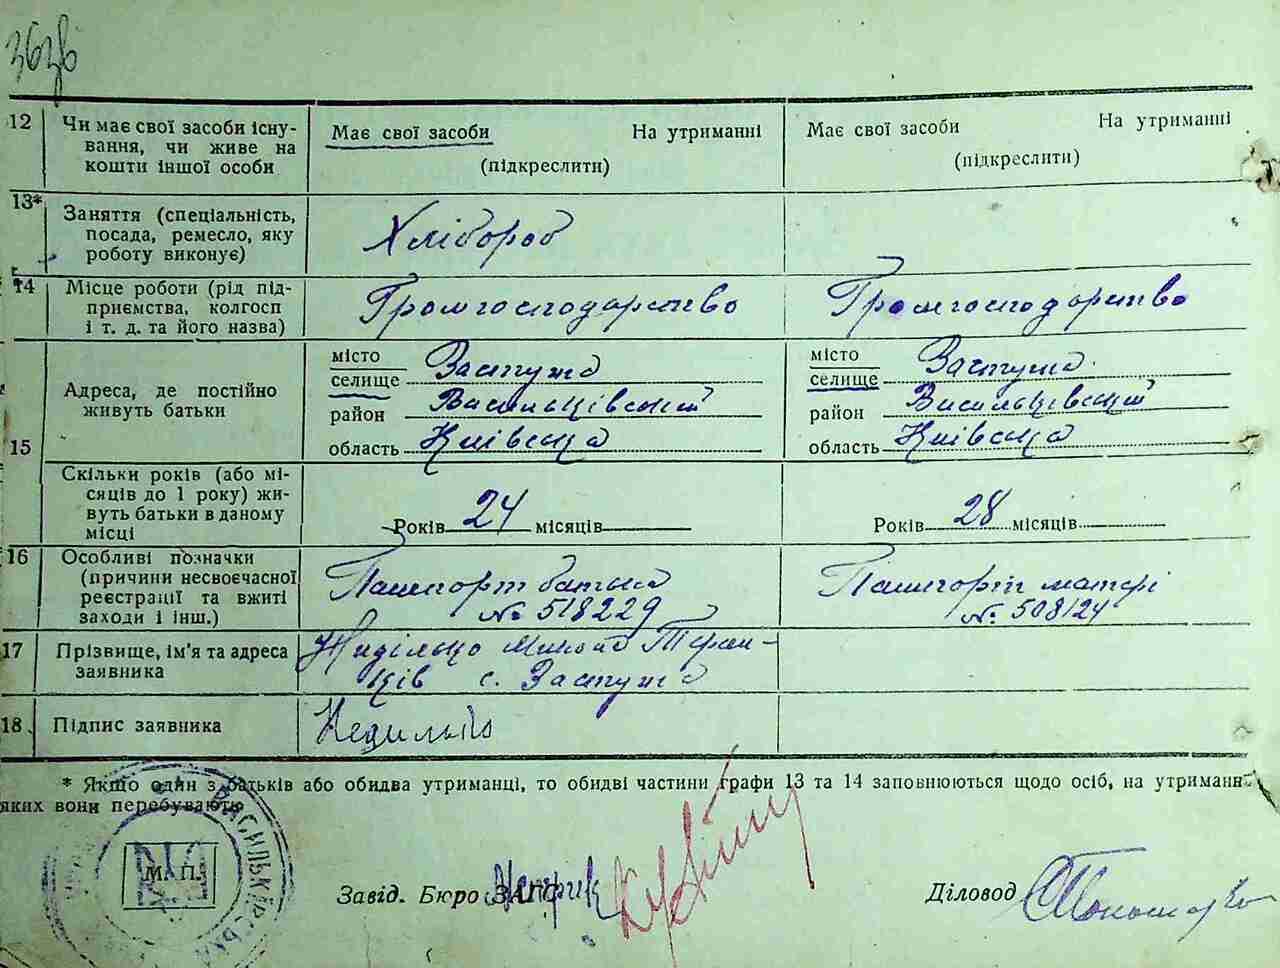 12 Чи має свої засоби існу-
вання, чи живе на
кошти іншої особи
Має свої засоби На утриманні
(підкреслити)
Має свої засоби На утриманні
(підкреслити)
13* Заняття (спеціальність,
посада, ремесло, яку
роботу виконує)
Хлібороб
14 Місце роботи (рід під-
приємства, колгосп
і т. д. та його назва)
Громгосподарство
Громгосподарство
15 Адреса, де постійно
живуть батьки
місто
селище Застуга
район Васильківський
область Київська
місто
селище Застуга
район Васильківський
область Київська
Скільки років (або мі-
сяців до 1 року) жи-
вуть батьки в даному
місці
Років 24 місяців
Років 28 місяців
16 Особливі позначки
(причини несвоєчасної
реєстрації та вжиті
заходи і інш.)
Пашпорт батька
№ 518229
Пашпорт матері
№ 508124
17 Прізвище, ім'я та адреса
заявника
с. Застуга
18 Підпис заявника
* Якщо один з батьків або обидва утриманці, то обидві частини графи 13 та 14 заповнюються щодо осіб, на утриманн
яких вони перебувають
М. П.
ВАСИЛЬКІВСЬК
Завід. Бюро ЗАГС
Діловод